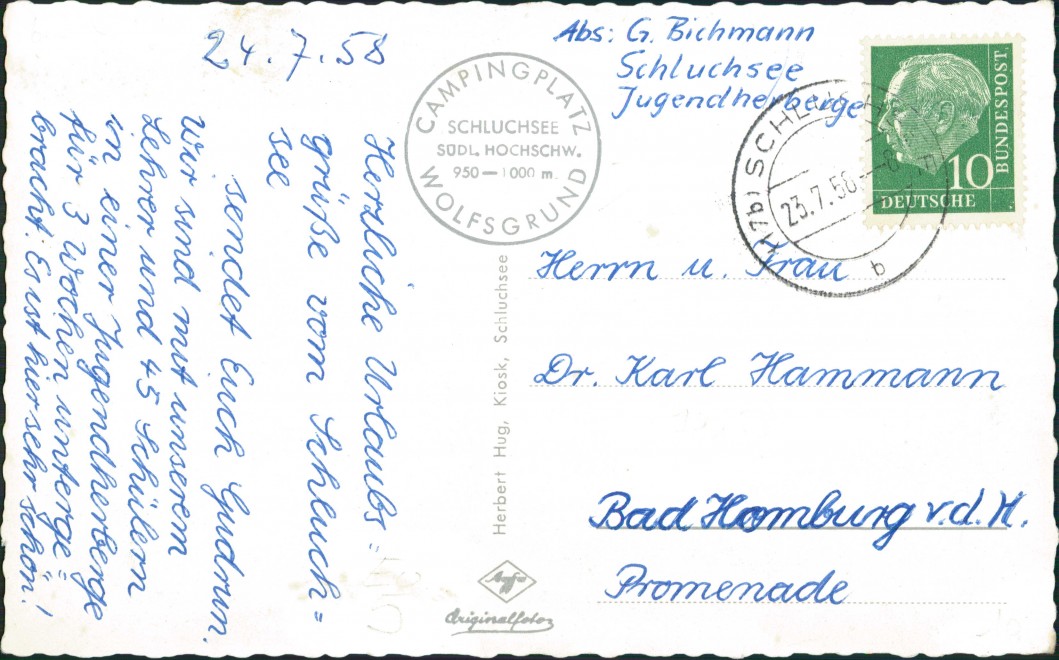 24.7.58
Herzliche Urlaubs=
grüße vom Schluch=
see
sendet Euch Gudrun.
Wir sind mit unserem
Lehrer und 45 Schülern
in einer Jugendherberge
für 3 Wochen unterge=
bracht. Es ist hier sehr schön!
CAMPINGPLATZ
SCHLUCHSEE
SÜDL. HOCHSCHW.
950 — 1000 m.
WOLFSGRUND
Herbert Hug, Kiosk, Schluchsee
Agfa
Originalfoto
Abs: G. Bichmann
Schluchsee
Jugendherberge
10
DEUTSCHE
BUNDESPOST
(17b) SCHLUCHSEE
23.7.58
b
Herrn u. Frau
Dr. Karl Hammann
Bad Homburg v.d.H.
Promenade